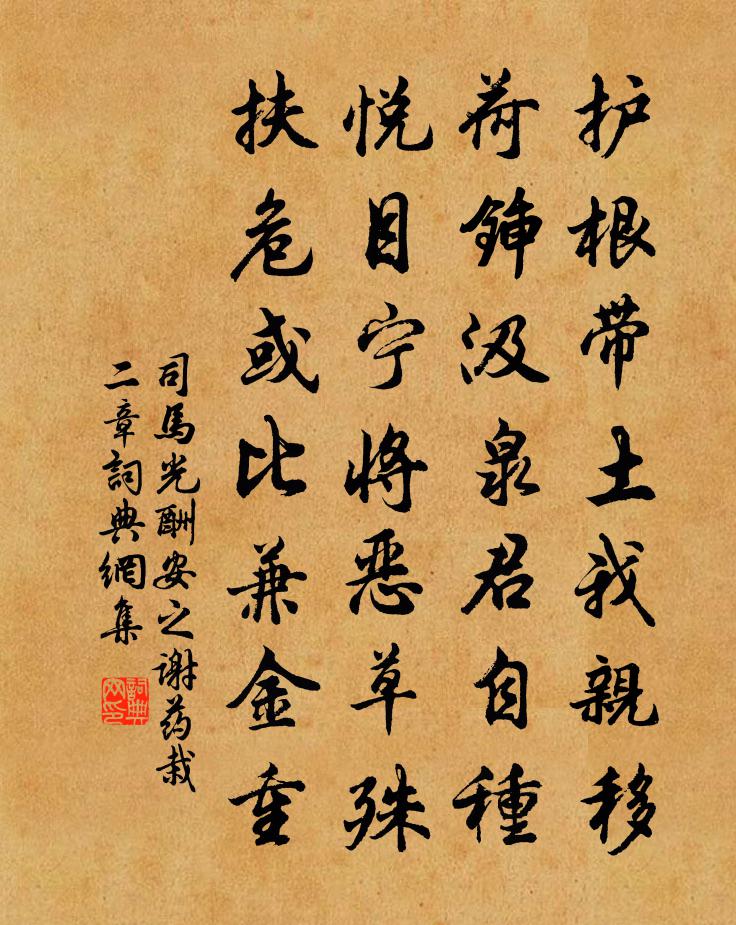 护根带土我親移
荷鍤汲泉君自種
悦目宁将恶草殊
扶危或比兼金重
司馬光酬安之谢药栽
二章詞典網集
詞典
网印